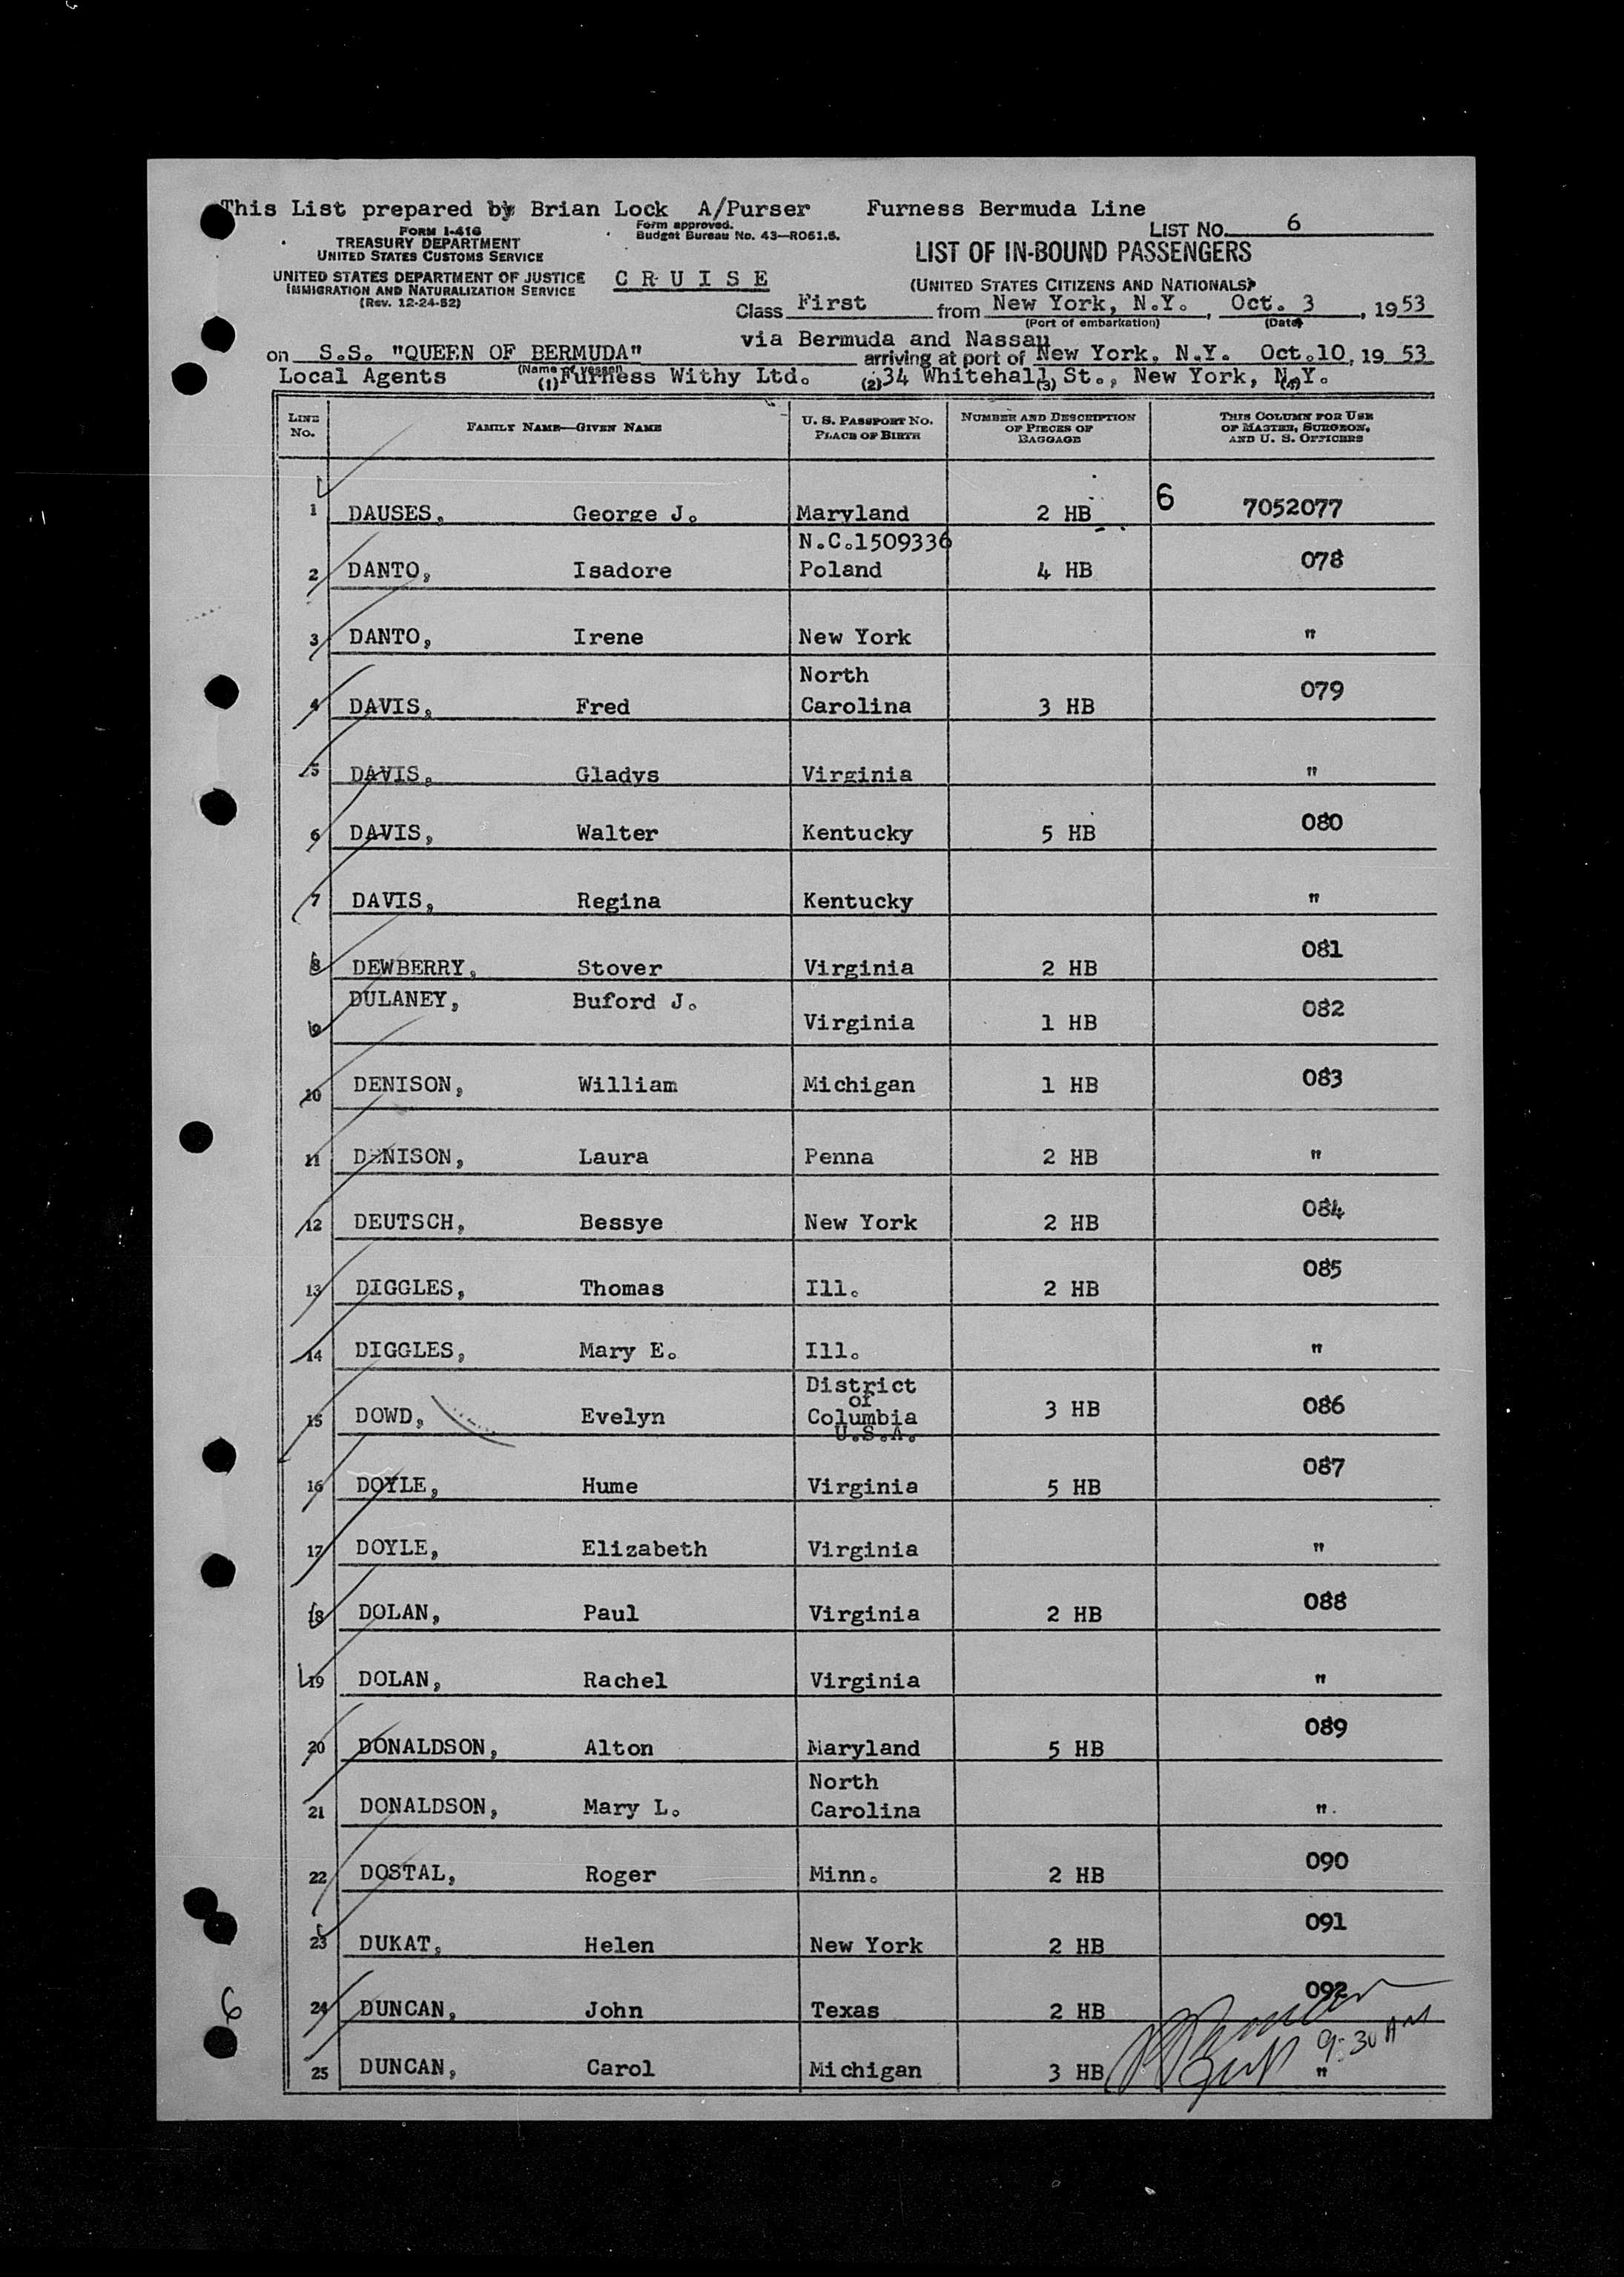 This List prepared by Brian Lock A/Purser Furness Bermuda Line
FORM I-416
TREASURY DEPARTMENT
UNITED STATES CUSTOMS SERVICE
Form approved.
Budget Bureau No. 43—RO51.5.
LIST No. 6
LIST OF IN-BOUND PASSENGERS
UNITED STATES DEPARTMENT OF JUSTICE
IMMIGRATION AND NATURALIZATION SERVICE
(Rev. 12-24-52)
CRUISE
(UNITED STATES CITIZENS AND NATIONALS)
Class First from New York, N.Y., Oct. 3, 1953
(Port of embarkation) (Date)
via Bermuda and Nassau
on S.S. "QUEEN OF BERMUDA" arriving at port of New York, N.Y. Oct.10, 19 53
(Name of vessel)
Local Agents (1) Furness Withy Ltd. (2) 34 Whitehall (3) St., New York, N.Y. (4)
LINE No. FAMILY NAME—GIVEN NAME U. S. PASSPORT NO. PLACE OF BIRTH NUMBER AND DESCRIPTION OF PIECES OF BAGGAGE THIS COLUMN FOR USE OF MASTER, SURGEON, AND U. S. OFFICERS
1 DAUSES, George J. Maryland 2 HB 6 7052077
2 DANTO, Isadore N.C.1509336 Poland 4 HB 078
3 DANTO, Irene New York "
4 DAVIS, Fred North Carolina 3 HB 079
5 DAVIS, Gladys Virginia "
6 DAVIS, Walter Kentucky 5 HB 080
7 DAVIS, Regina Kentucky "
8 DEWBERRY, Stover Virginia 2 HB 081
9 DULANEY, Buford J. Virginia 1 HB 082
10 DENISON, William Michigan 1 HB 083
11 DENISON, Laura Penna 2 HB "
12 DEUTSCH, Bessye New York 2 HB 084
13 DIGGLES, Thomas Ill. 2 HB 085
14 DIGGLES, Mary E. Ill. "
15 DOWD, Evelyn District of Columbia U.S.A. 3 HB 086
16 DOYLE, Hume Virginia 5 HB 087
17 DOYLE, Elizabeth Virginia "
18 DOLAN, Paul Virginia 2 HB 088
19 DOLAN, Rachel Virginia "
20 DONALDSON, Alton Maryland 5 HB 089
21 DONALDSON, Mary L. North Carolina "
22 DOSTAL, Roger Minn. 2 HB 090
23 DUKAT, Helen New York 2 HB 091
6
24 DUNCAN, John Texas 2 HB 092
9:30 AM
25 DUNCAN, Carol Michigan 3 HB "